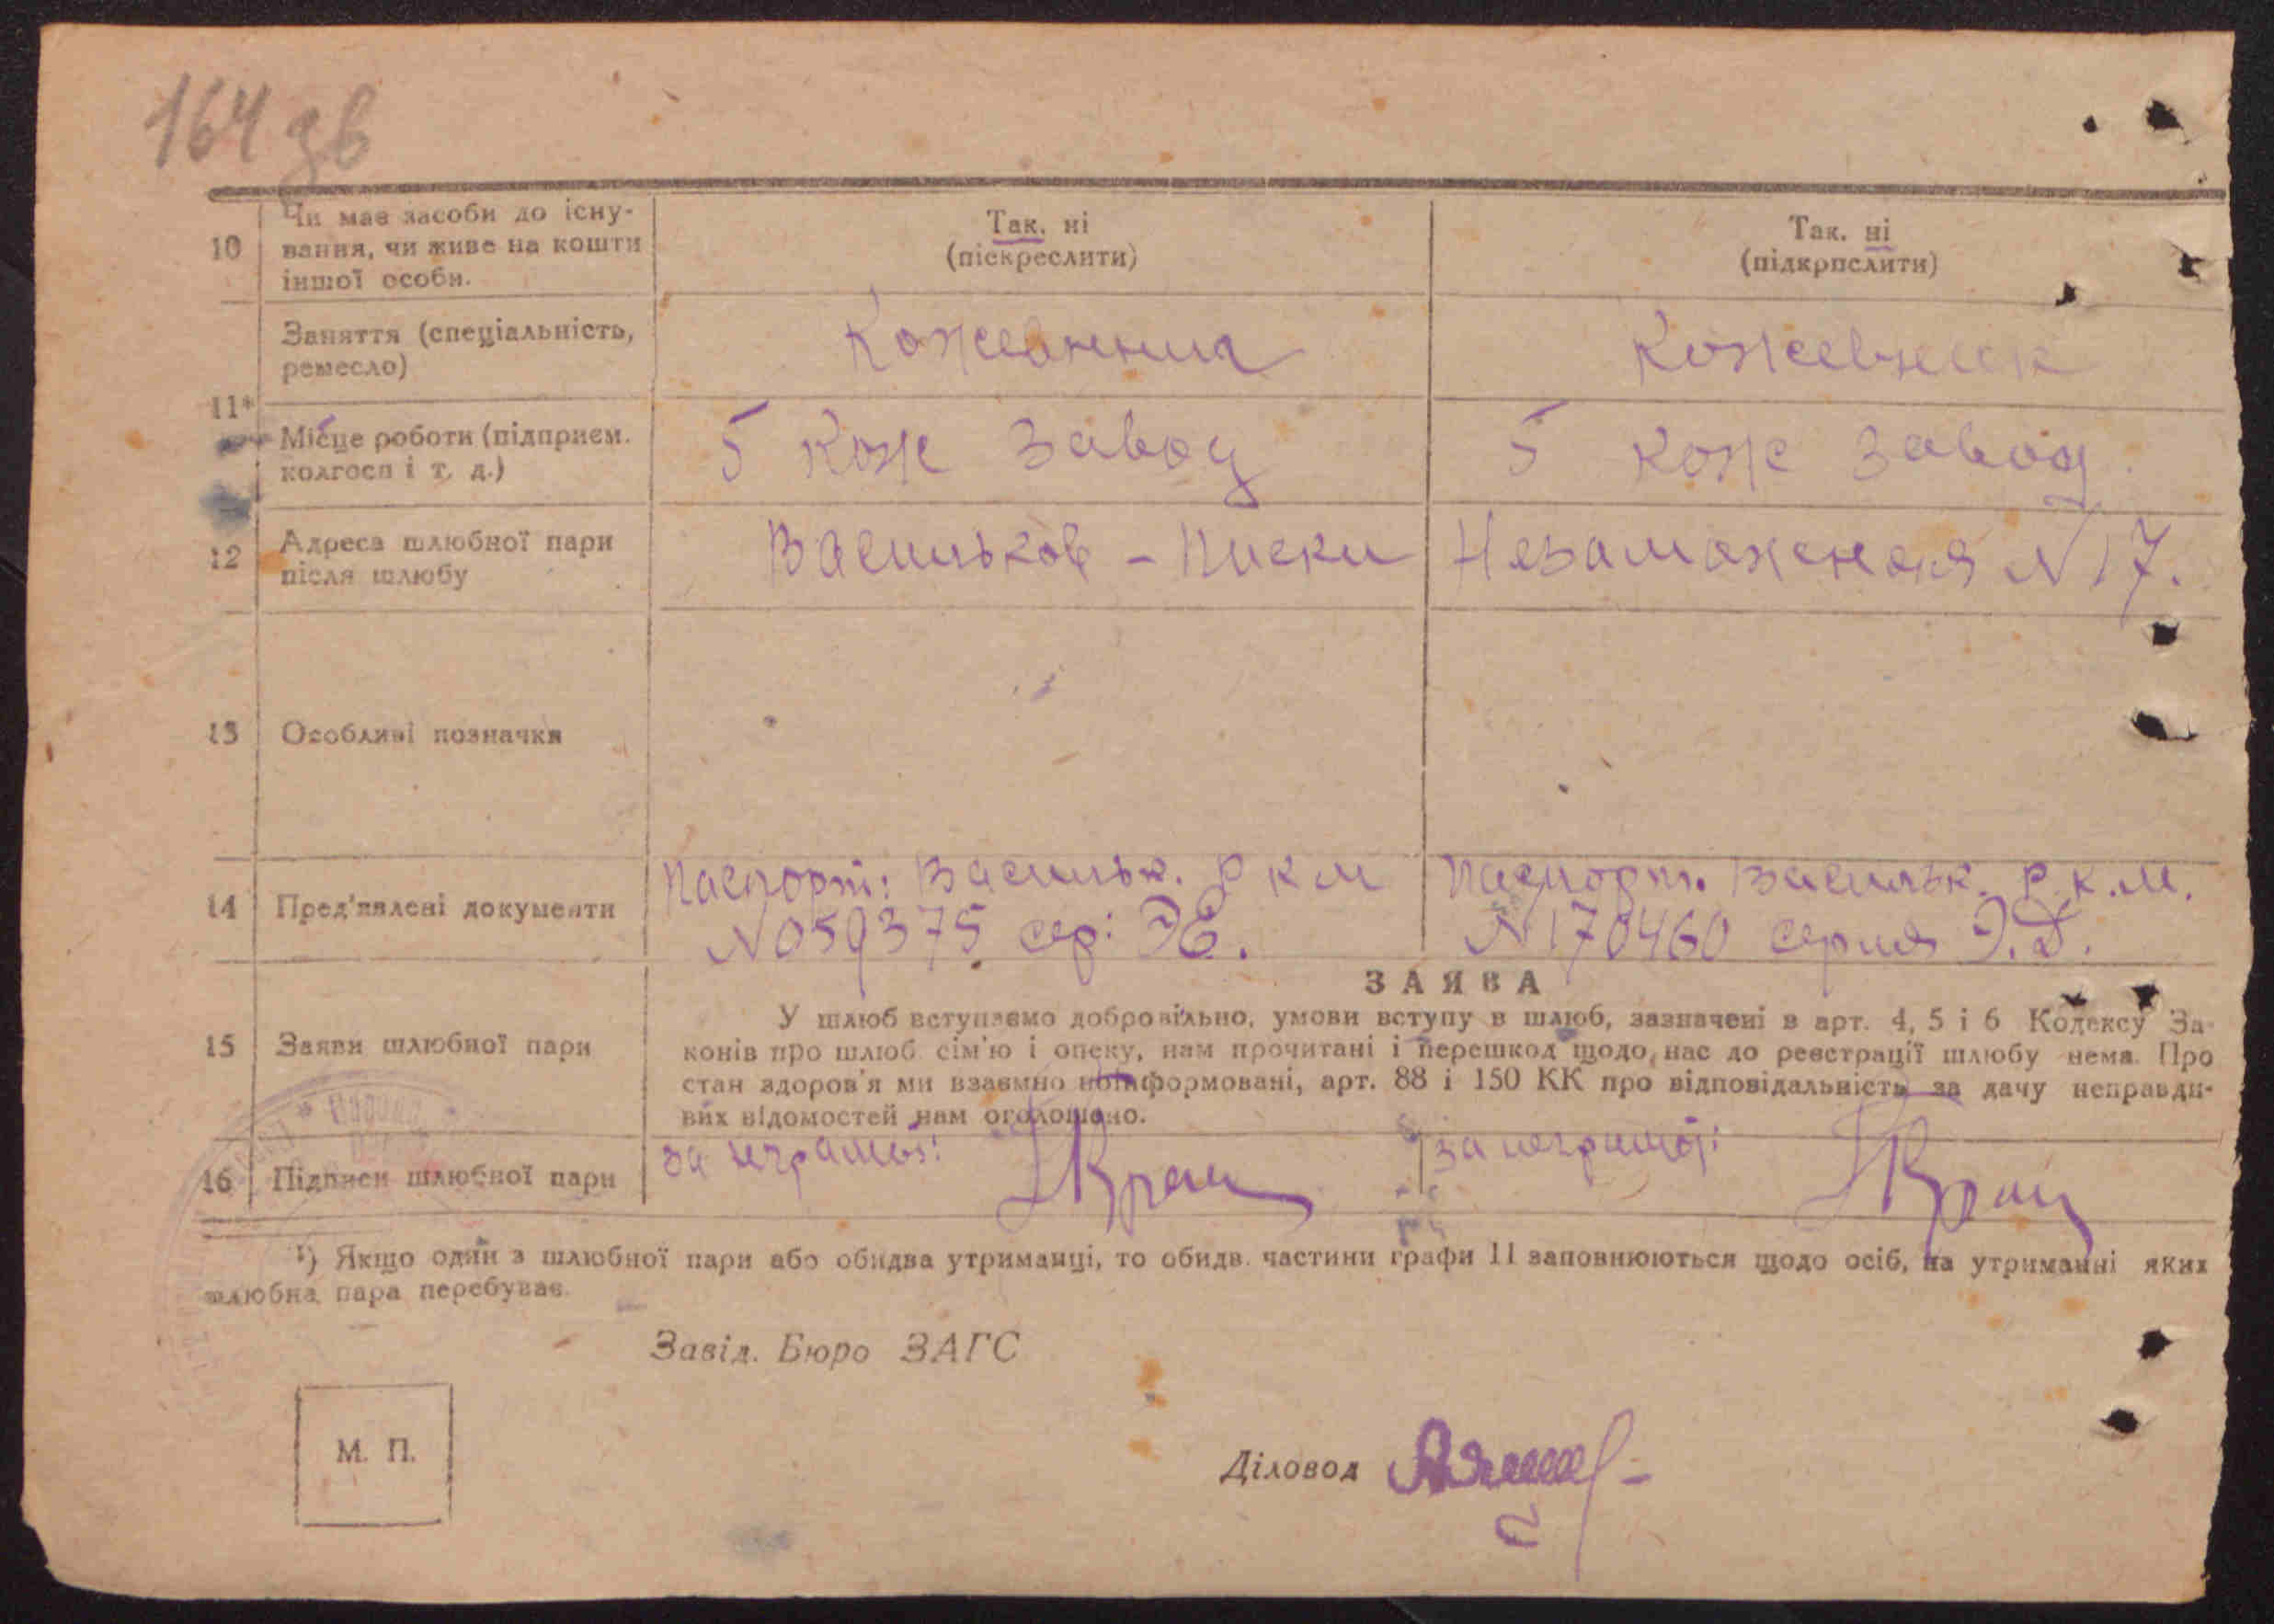 164 зв
10 Чи має засоби до існу- Так, ні Так. ні
вання, чи живе на кошти (піскреслити) (підкрпслити)
іншої особи.
Заняття (спеціальність, Кожевник Кожевник
ремесло)
11*
Місце роботи (підприєм. 5 Кож завод 5 кож завод.
колгосп і т. д.)
12 Адреса шлюбної пари Васильков – Писки Незаможная № 17.
після шлюбу
13 Особливі позначки
14 Пред'явлені документи Паспорт: Васильк. Р К М Паспорт. Васильк. Р.К.М.
№ 059375 сер: ЭЕ. № 170460 серия Э.Д.
ЗАЯВА
15 Заяви шлюбної пари У шлюб вступаємо добровільно, умови вступу в шлюб, зазначені в арт. 4, 5 і 6 Кодексу За-
конів про шлюб. сім'ю і опеку, нам прочитані і перешкод щодо нас до реєстрації шлюбу нема. Про
стан здоров'я ми взаємно поінформовані, арт. 88 і 150 КК про відповідальність за дачу неправди-
вих відомостей нам оголошено.
16 Підписи шлюбної пари за неграмот: Кран за неграмот: Кран
¹) Якщо один з шлюбної пари або обидва утриманці, то обидв. частини графи 11 заповнюються щодо осіб, на утриманні яких
шлюбна пара перебуває.
Завід. Бюро ЗАГС
М. П.
Діловод